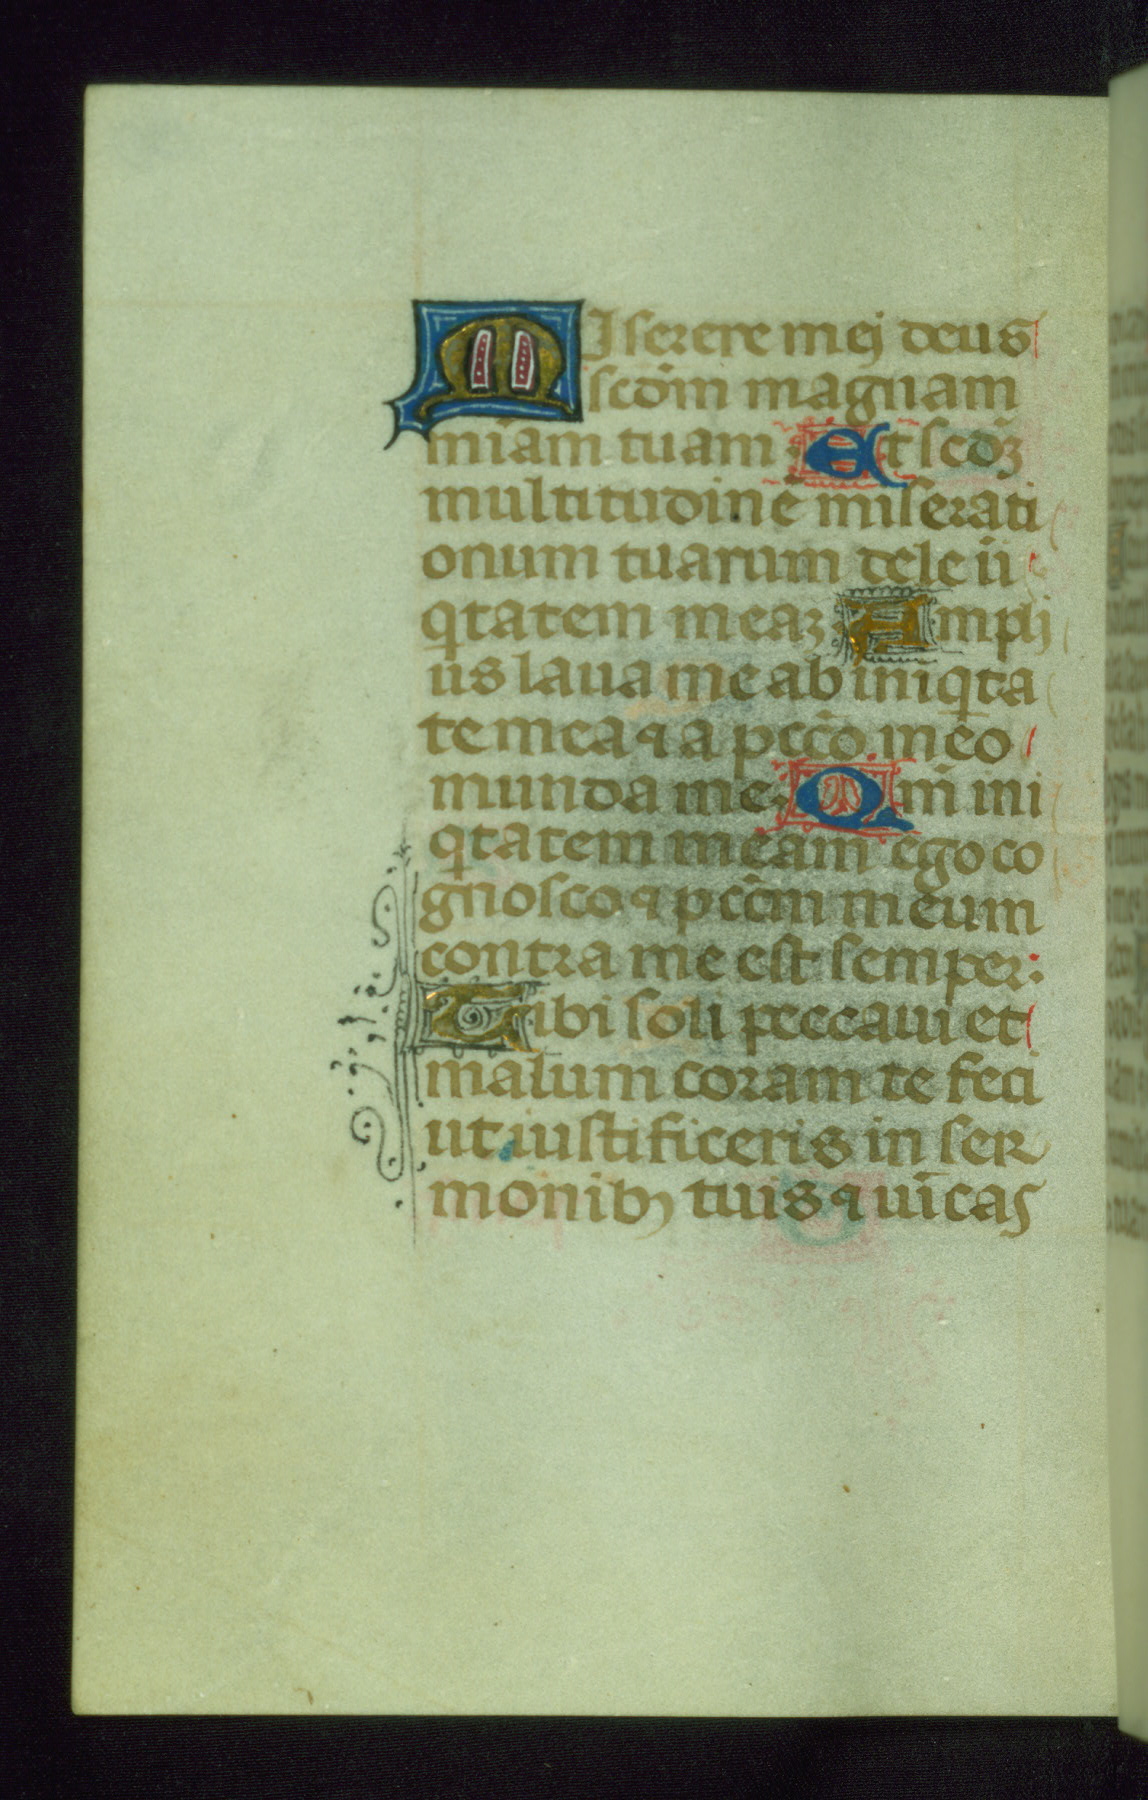 MIserere mej deus
scd̄m magnam
mīam tuam. Et scdꝫ
multitudinē miserati
onum tuarum dele ii
qtatem meaꝫ. Ampli
us laua me ab iniqta
te mea ⁊ a pccō meo
munda me. Qm̄ ini
qtatem meam ego co
gnosco ⁊ pccm̄ meum
contra me est semper:
Tibi soli peccaui et
malum coram te feci
ut iustificeris in ser
monibꝫ tuis ⁊ uīcas